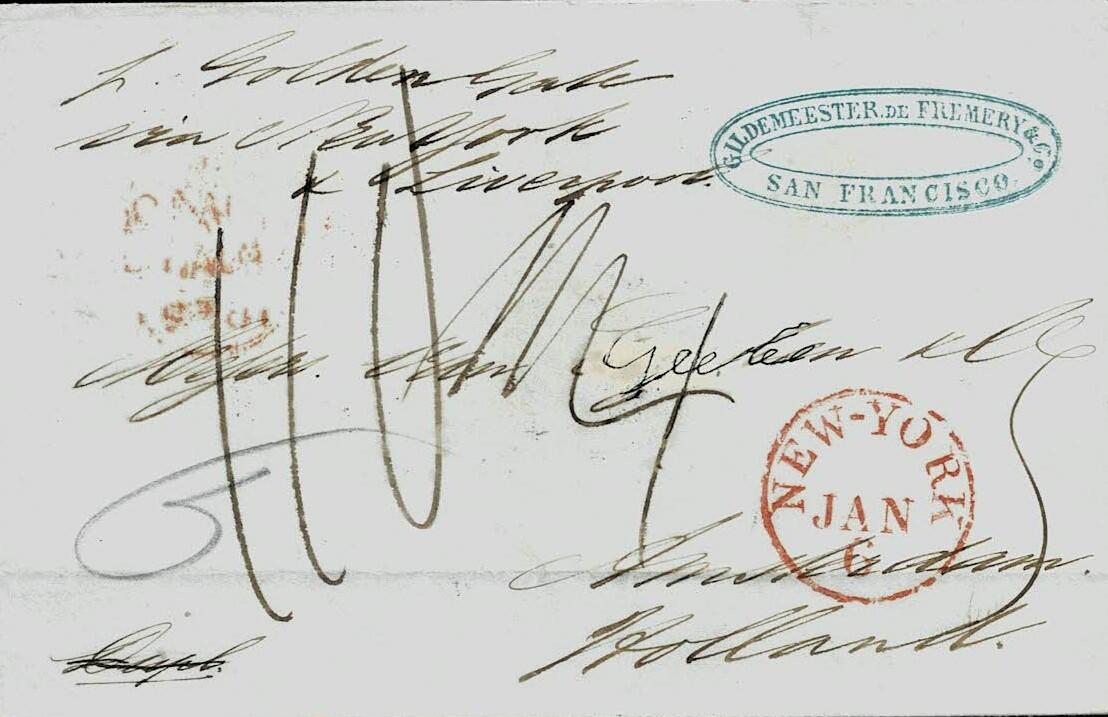 p. Golden Gate
via New York
& Liverpool.
GILDEMEESTER. DE FREMERY & Co.
SAN FRANCISCO.
van
& Co
NEW-YORK
JAN
6
Amsterdam.
Holland.
Dupl.